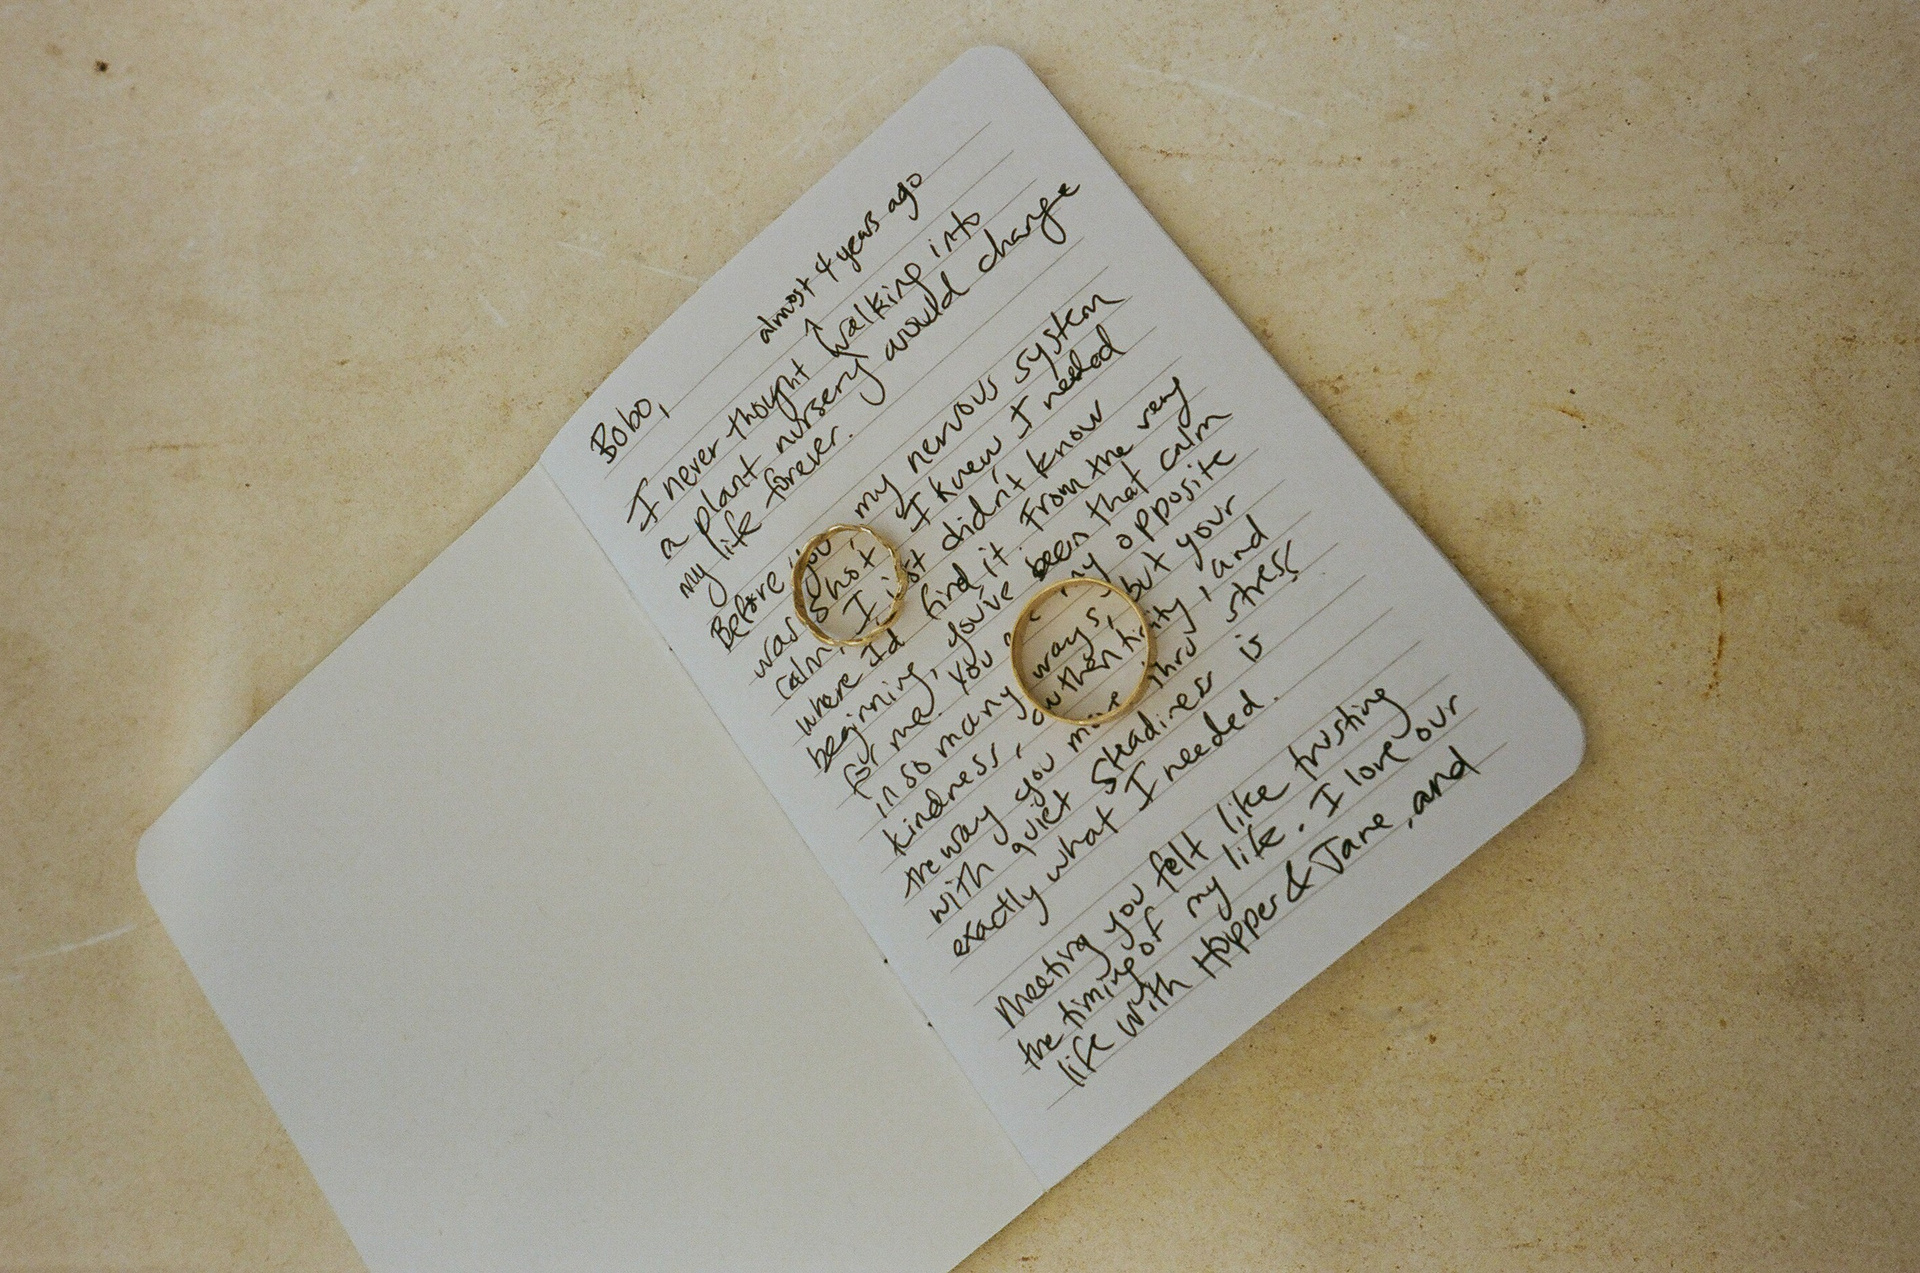 almost 4 years ago
Bobo,
I never thought ↑ walking into
a plant nursery would change
my life forever.
Before you, my nervous system
was shot. I knew I needed
calm, I just didn't know
where I'd find it. From the very
beginning, you've been that calm
for me. You my opposite
in so many ways, but your
kindness, authenticity, and
the way you move thru stress
with quiet steadiness is
exactly what I needed.
Meeting you felt like trusting
the timing of my life. I love our
life with Hopper & Jane, and